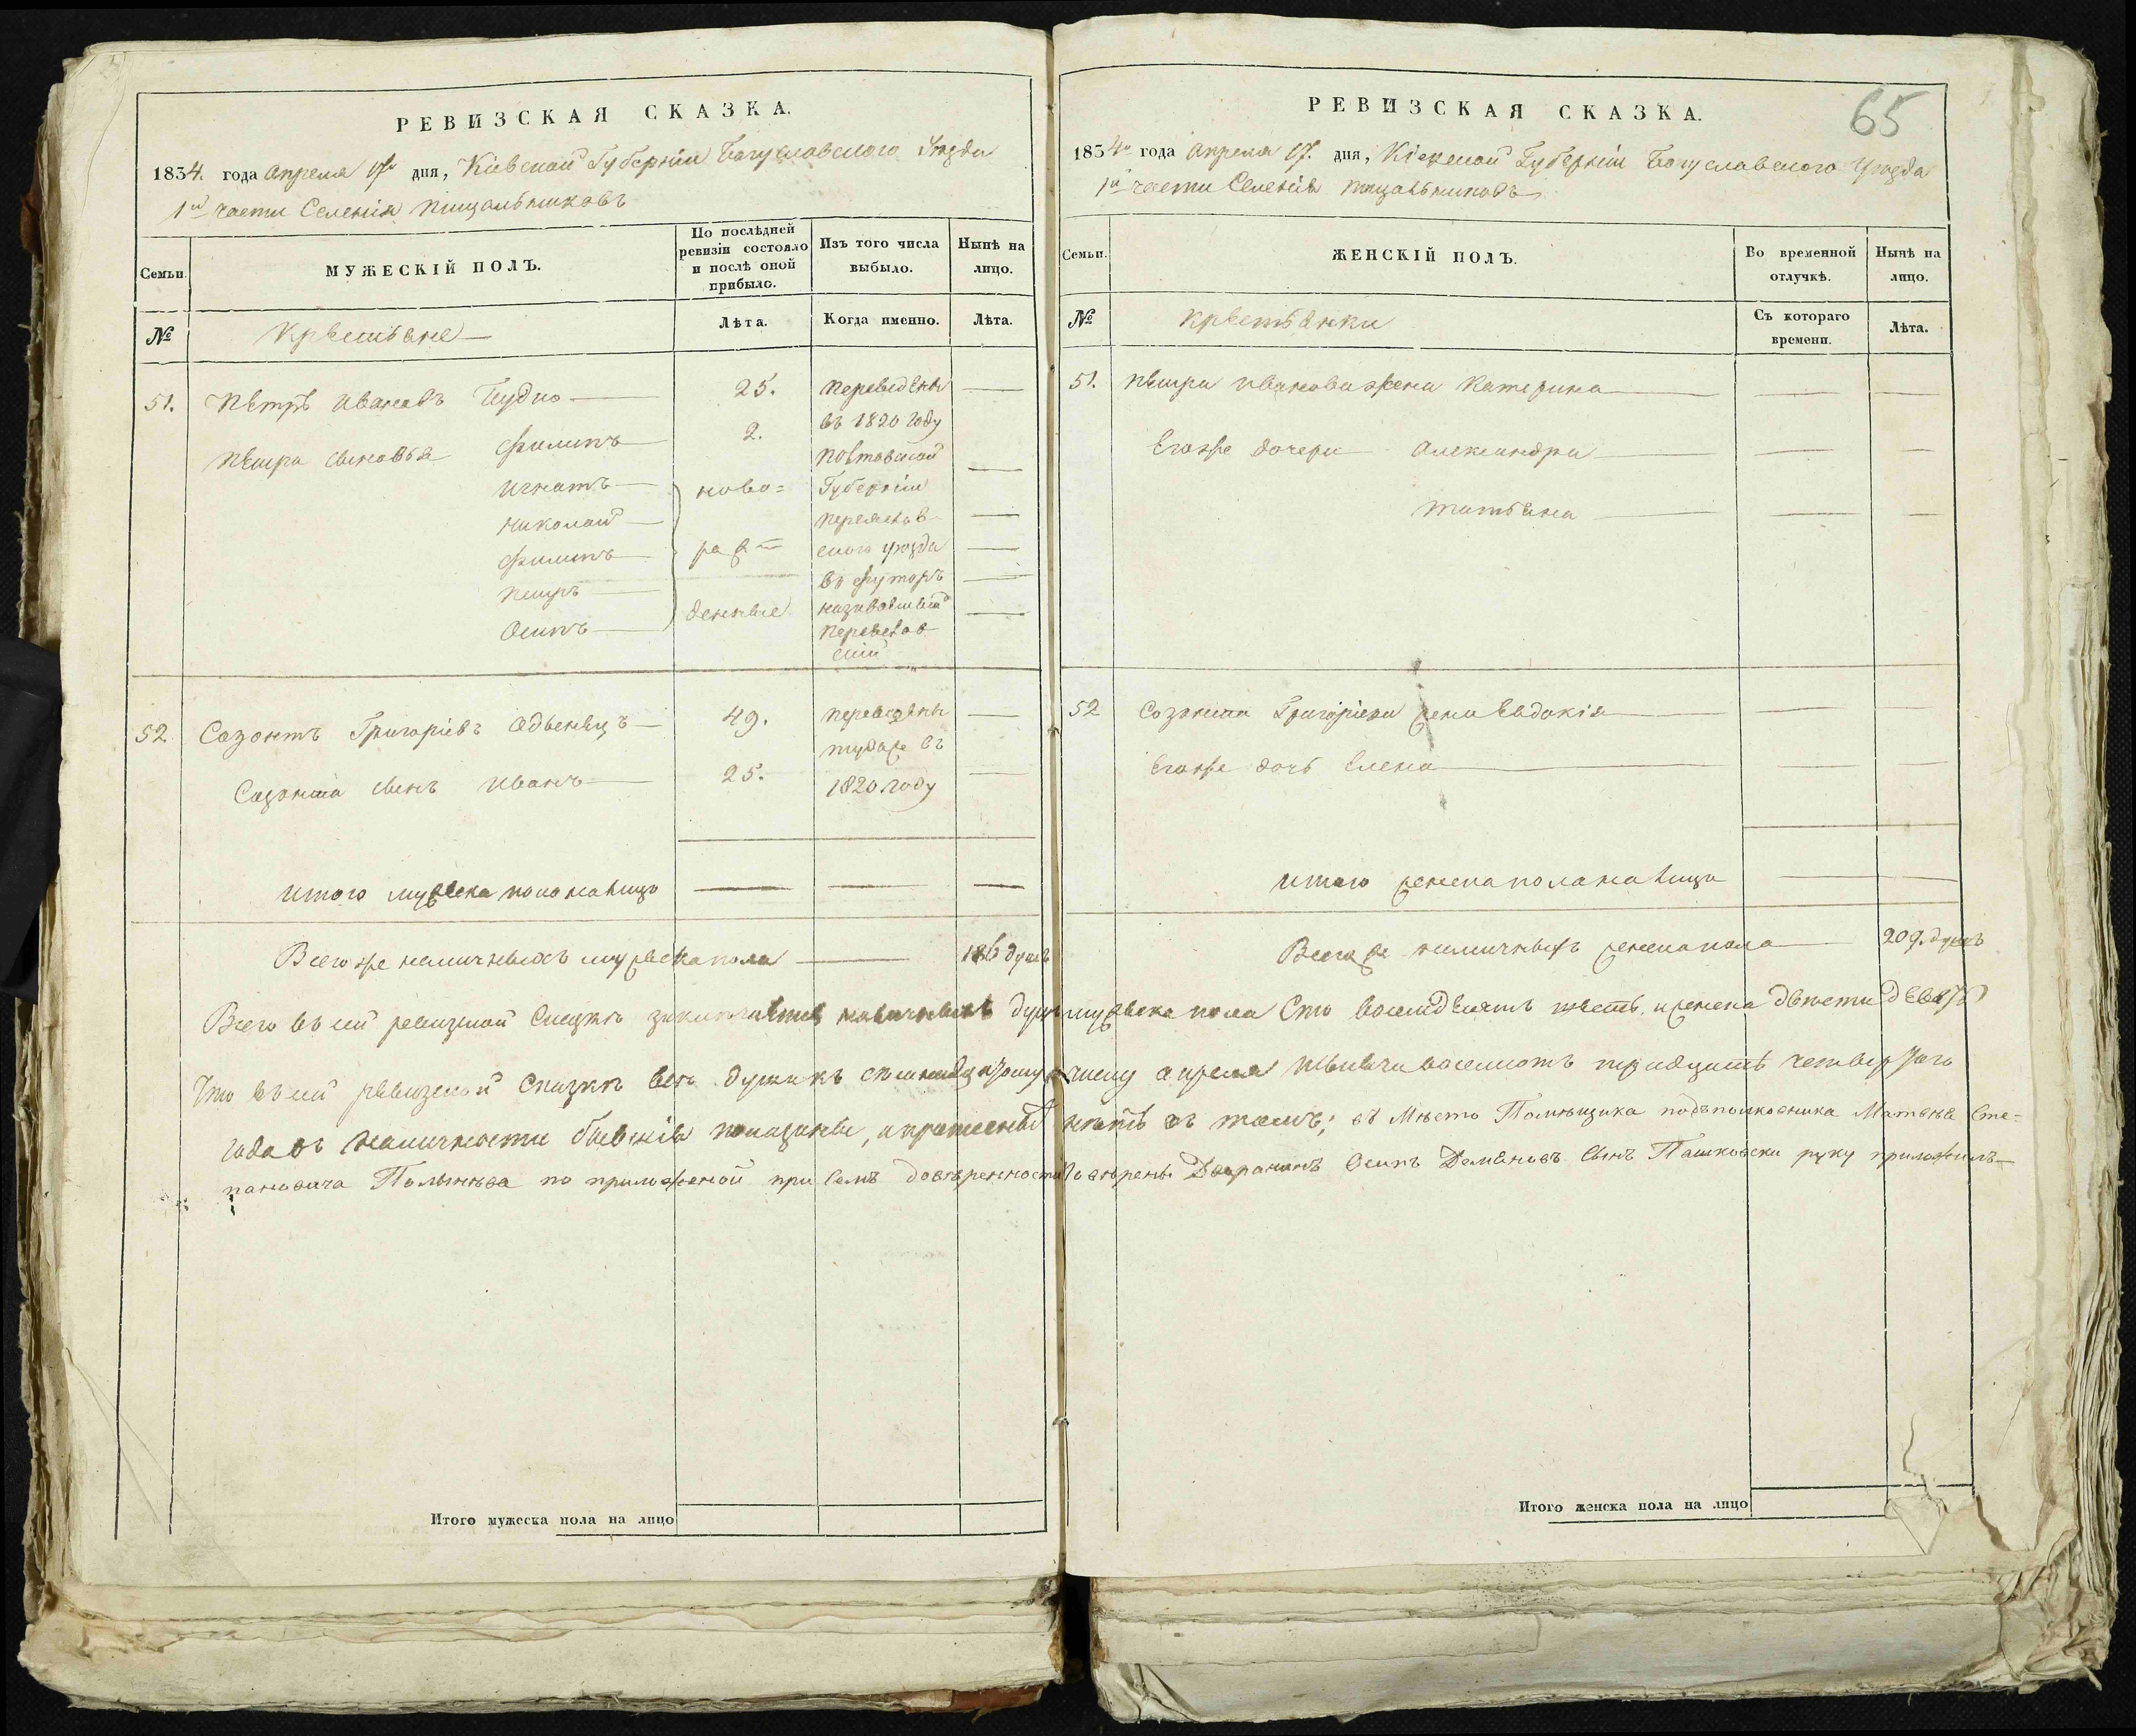 РЕВИЗСКАЯ СКАЗКА.
1834. года апреля 17го дня, Кіевской Губерніи Богуславского Уезда
1й части Селенія Пищальниковъ
Семьи.
МУЖЕСКІЙ ПОЛЪ.
По послѣдней ревизіи состояло и послѣ оной прибыло.
Изъ того числа выбыло.
Нынѣ на лицо.
№
Крестьяне
Лѣта.
Когда именно.
Лѣта.
51. Петръ Ивановъ 25. переведены
въ 1820 году
Петра сыновья Филипъ 2. Полтавской
Игнатъ ново= Губерніи
Николай Переяслав-
Филипъ раж- ского уезда
Петръ въ хуторъ
Осипъ денные называемый
Переяслав-
скій
52. Созонтъ Григоріевъ 49. переведены
туда же въ
Созонта сынъ Иванъ 25. 1820 году
Итого мужеска пола на лицо
Всего же наличныхъ мужеска пола 186 душъ
Всего въ сей ревизской Сказке заключается наличныхъ душъ мужеска пола Сто восемдесятъ шесть, и женска двести девять
Что въ сей ревизской Сказке все души къ семнадцатому числу апреля тысяча восемсотъ тридцать четвертого
года въ наличности бывшія показаны, и прописной нетъ въ томъ; въ Мѣсто Помѣщика подъполковника Матвея Сте=
пановича по приложеной при семъ довѣренности Повѣрены Дворянинъ Осипъ Демяновъ Сынъ Пашковски руку приложилъ
Итого мужеска пола на лицо
РЕВИЗСКАЯ СКАЗКА.
65
1834го года апреля 17. дня, Кіевской Губерніи Богуславского Уезда
1й части Селенія Пищальниковъ
Семьи.
ЖЕНСКІЙ ПОЛЪ.
Во временной отлучкѣ.
Нынѣ на лицо.
№
Крестьянки
Съ котораго времени.
Лѣта.
51. Петра Иванова жена Катерина
Егоже дочери Александра
Татьяна
52 Созонта Григоріева жена Евдокія
Егоже дочь Елена
Итого женска пола на лицо
Всего же наличныхъ женска пола 209. душъ
Итого женска пола на лицо